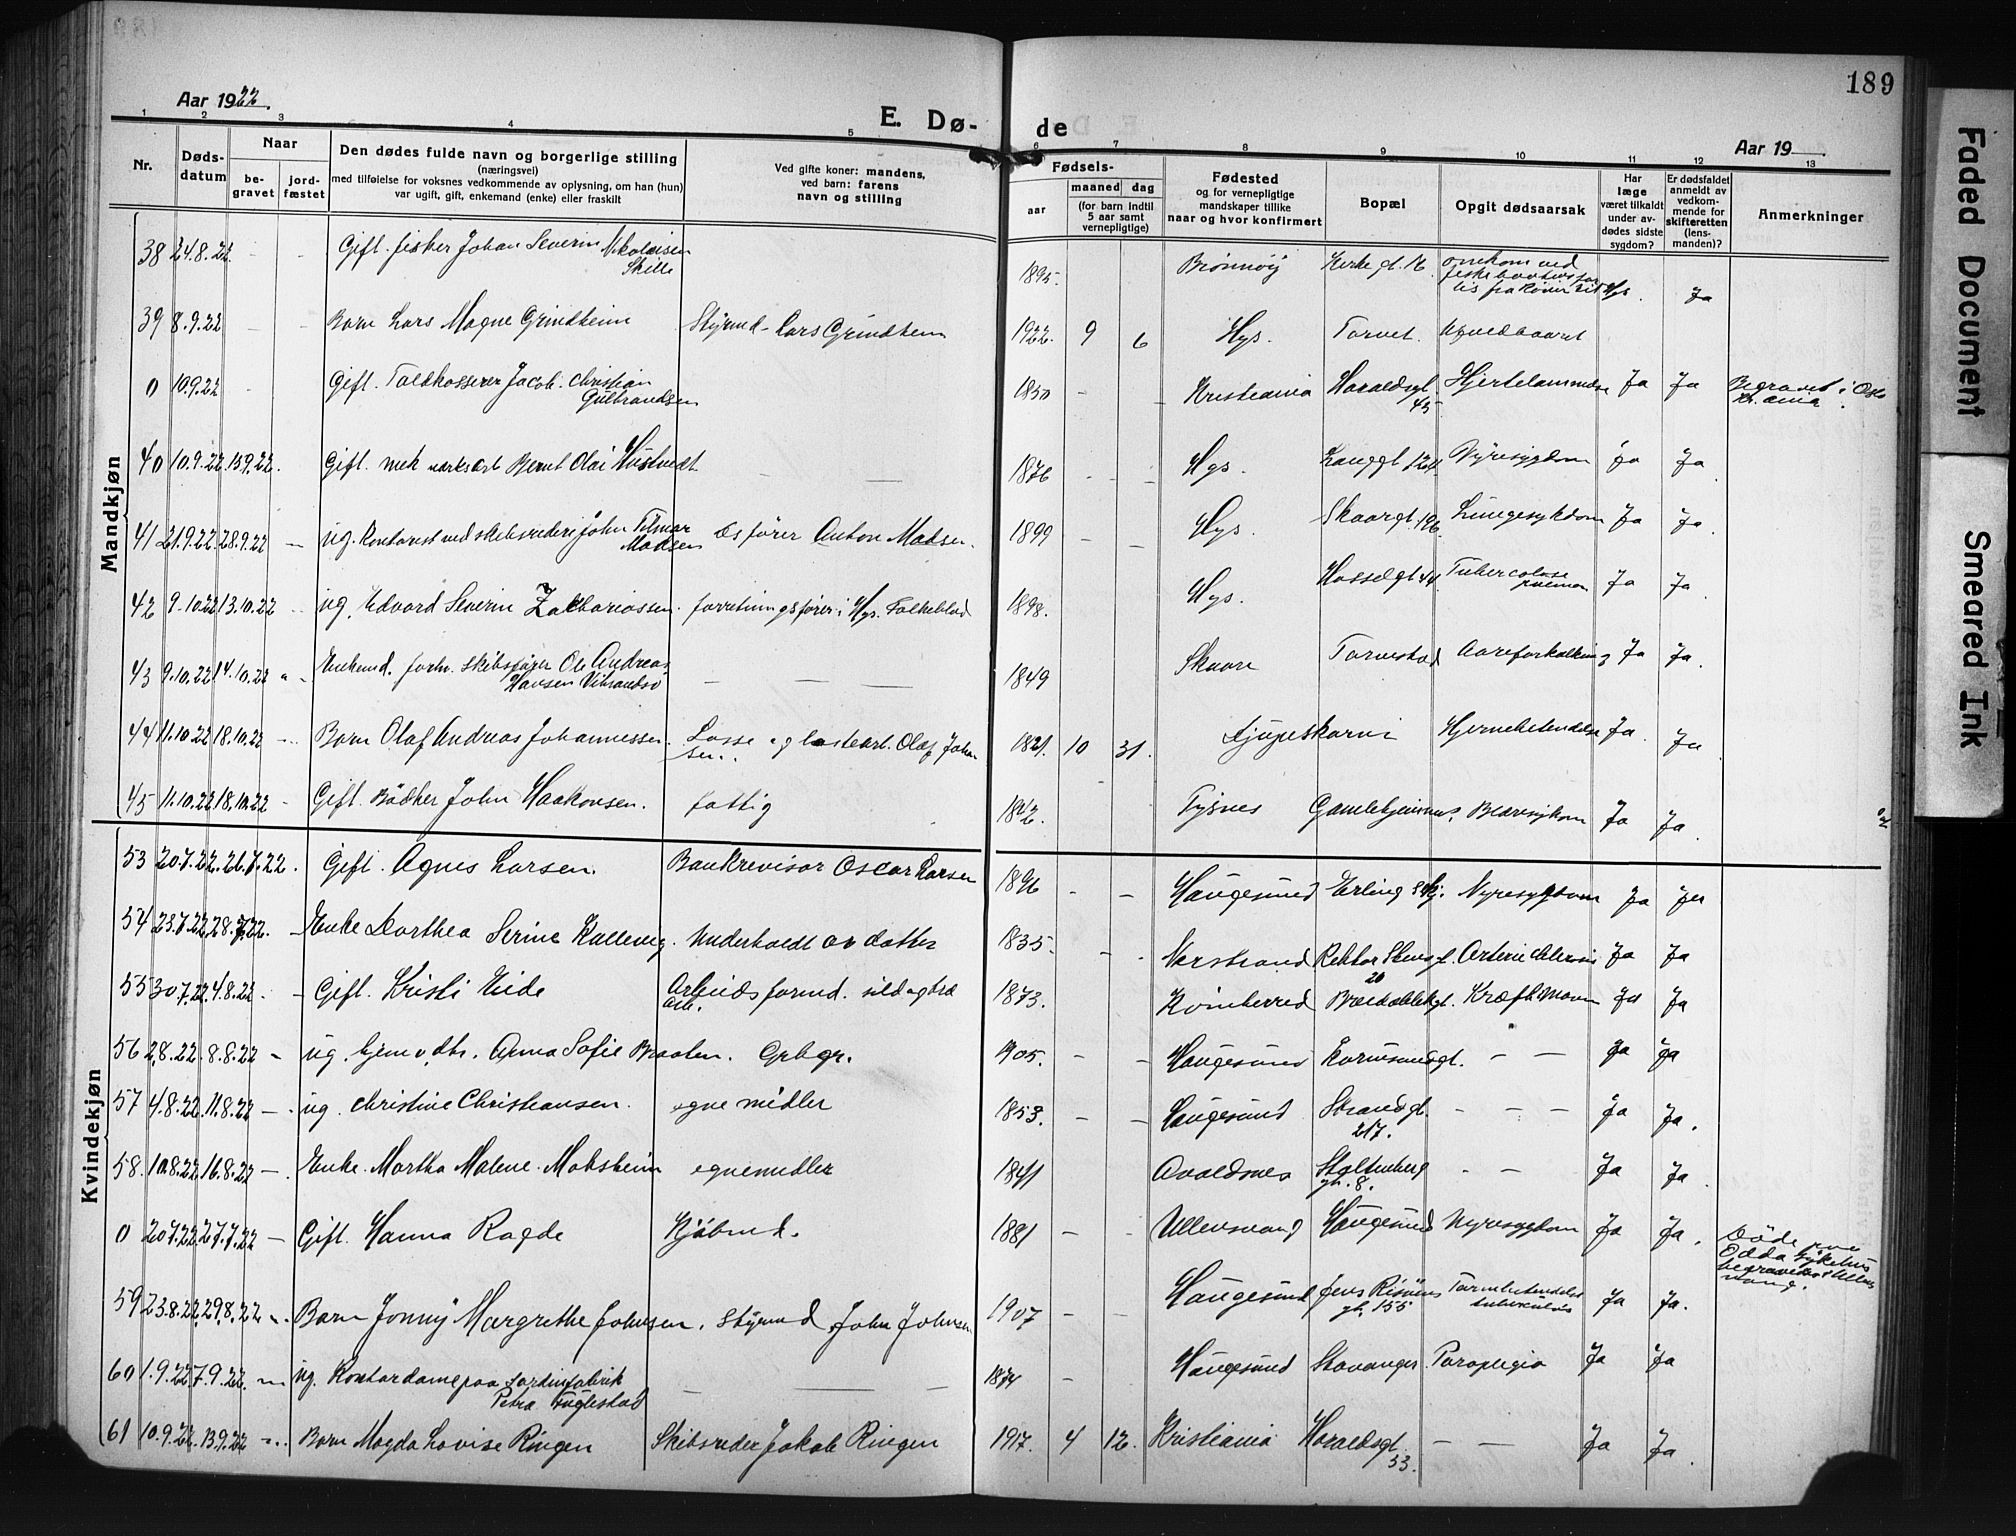 189
Aar 1922.
E. Dø-
de
Aar 19
1 2 3 4 5 6 7 8 9 10 11 12 13
Nr.
Døds-
datum
Naar
be-
gravet
jord-
fæstet
Den dødes fulde navn og borgerlige stilling
(næringsvei)
med tilføielse for voksnes vedkommende av oplysning, om han (hun)
var ugift, gift, enkemand (enke) eller fraskilt
Ved gifte koner: mandens,
ved barn: farens
navn og stilling
Fødsels-
aar
maaned
dag
(for barn indtil
5 aar samt
vernepligtige)
Fødested
og for vernepligtige
mandskaper tillike
naar og hvor konfirmert
Bopæl
Opgit dødsaarsak
Har
læge
været tilkaldt
under av-
dødes sidste
sygdom?
Er dødsfaldet
anmeldt av
vedkom-
mende for
skifteretten
(lens-
manden)?
Anmerkninger
Mandkjøn
38 24.8.22 Gift. fisker Johan Severin Nikolaisen
Skille
1895. Brønnøy Kirkegt. omkom ved
Ja
39 8.9.22 Barn Lars Magne Grindheim Styrmd. Lars Grindheim 1922. 9 6 Hgs. Torvet.
0 10.9.22 Gift. Toldkasserer Jacob Christian
Gulbrandsen
1850 - - Kristiania Haraldsgt.
45
Hjertelammelse Ja Ja Begravet i Oslo
Kr.ania.
40 10.9.22 15.9.22. Gift. mek verksarb Bernt Olai Hustvedt 1876 - - Hgs. Langgt 124 Nyresygdom Ja Ja
41 21.9.22 28.9.22 - ug. Kontorist ved skibsrederi John Tilmar
Madsen
Anton Madsen. 1899 - - Hgs. Skaaregt. 196 Lungesykdom Ja Ja
42 9.10.22 13.10.22 ug. Edvard Severin Zakhariassen. forretningsfører i Hgs. Folkeblad 1898. Hgs. Hasselgt 44 Tuberculose
pulmon
Ja Ja
43 9.10.22 14.10.22 Enkemd. forhv. skibsfører Ole Andreas
Hansen Vibrandsø
- - - 1849 Skaare Torvestad Aareforkalkning Ja Ja.
44 11.10.22 18.10.22 Barn Olaf Andreas Johannessen. Losse og lastearb. Olaf Johan
sen.
1821. 10 31. Djupeskarvi Hjernebetendelse Ja Ja
45 11.10.22 18.10.22 - Gift. Bødker John Haakonsen. fattig 1842. Tysnes Gamlehjemmet Blæresykdom Ja Ja.
Kvindekjøn
53 20.7.22. 26.7.22. Gift. Agnes Larsen. Bankrevisor Oscar Larsen 1896 - - Haugesund Erling Skj. Nyresygdom Ja Ja
54 23.7.22. 28.7.22. Enke Dorthea Serine Kallevig. Underholdt av datter 1835. - - Nerstrand Rektor Stensgt.
20
Ja Ja
55 30.7.22. 4.8.22. - Gift. Kristi Eide Arbeidsformd. sild og træ
arb.
1873. Kvinherred Breidablikgt. Kræft Maven Ja Ja
56 2.8.22. 8.8.22 - ug. hjemv.dtr. Anna Sofie Braaten. Grbgr. 1905. - - Haugesund Karmsundgt. - - Ja Ja
57 4.8.22. 11.8.22 - ug. Christine Christiansen. egne midler 1853. - - Haugesund Strandgt.
217.
- - - Ja Ja.
58. 10.8.22. 16.8.22 - Enke. Martha Malene Maksheim egne midler 1841 - Avaldsnes Stoltenberg
gt. 8.
- - Ja Ja
0 20.7.22. 27.7.22 - Gift. Hanna Ragde Kjøbmd. 1881 - Ullensvang Haugesund Nyresygdom Ja Ja. Døde paa
Odda sykehus
begravet Ullens
vang.
59 23.8.22. 29.8.22 Barn Jonny Margrethe Johnsen. Styrmd John Johnsen 1907 - - Haugesund Jens Risøens
gt. 155
Tarmbetendelse
tuberculøs
Ja Ja.
60 1.9.22 7.9.22. ug. Kontordame paa Sardinfabrik
Petra Fuglestad
- - - 1874 - Haugesund Stavanger Paraplegia Ja Ja
61 10.9.22. 13.9.22 Barn Magda Lovise Ringen Skibsreder Jakob Ringen 1917. 4 12. Kristiania Haraldsgt.
53.
- - Ja Ja
Faded Document
Smeared Ink